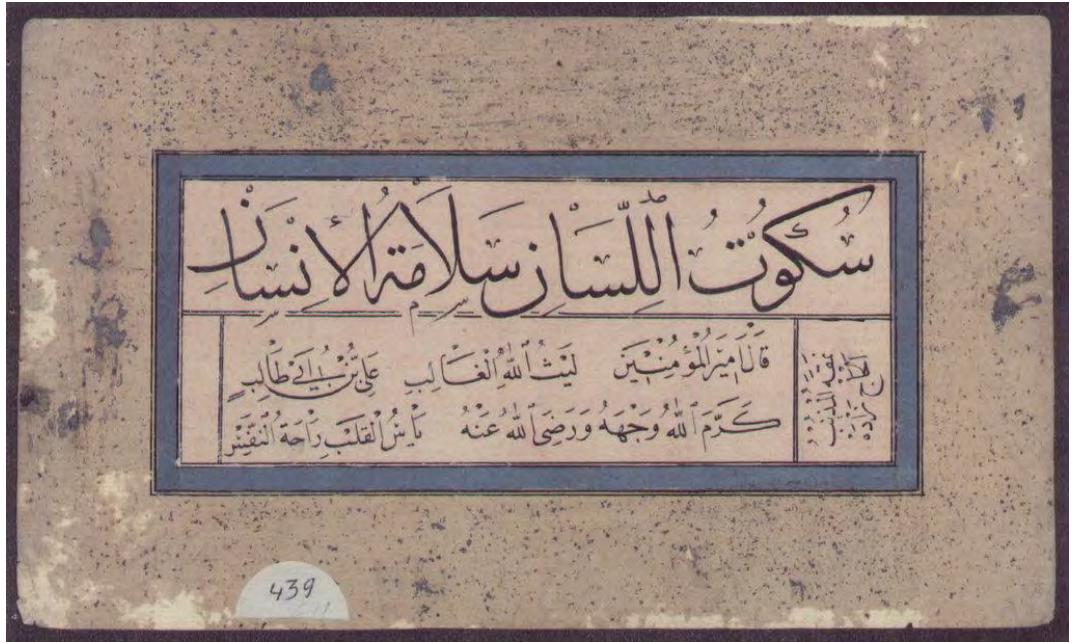 سُكُوتُ اللِّسَانِ سَلَامَةُ الْإِنْسَانِ
قَالَ أَمِيرُ الْمُؤْمِنِينَ لَيْثُ اللهِ الْغَالِبِ عَلِيُّ بْنُ أَبِي طَالِبٍ
كَرَّمَ اللهُ وَجْهَهُ وَرَضِيَ اللهُ عَنْهُ يَأْسُ الْقَلْبِ رَاحَةُ النَّفْسِ
439